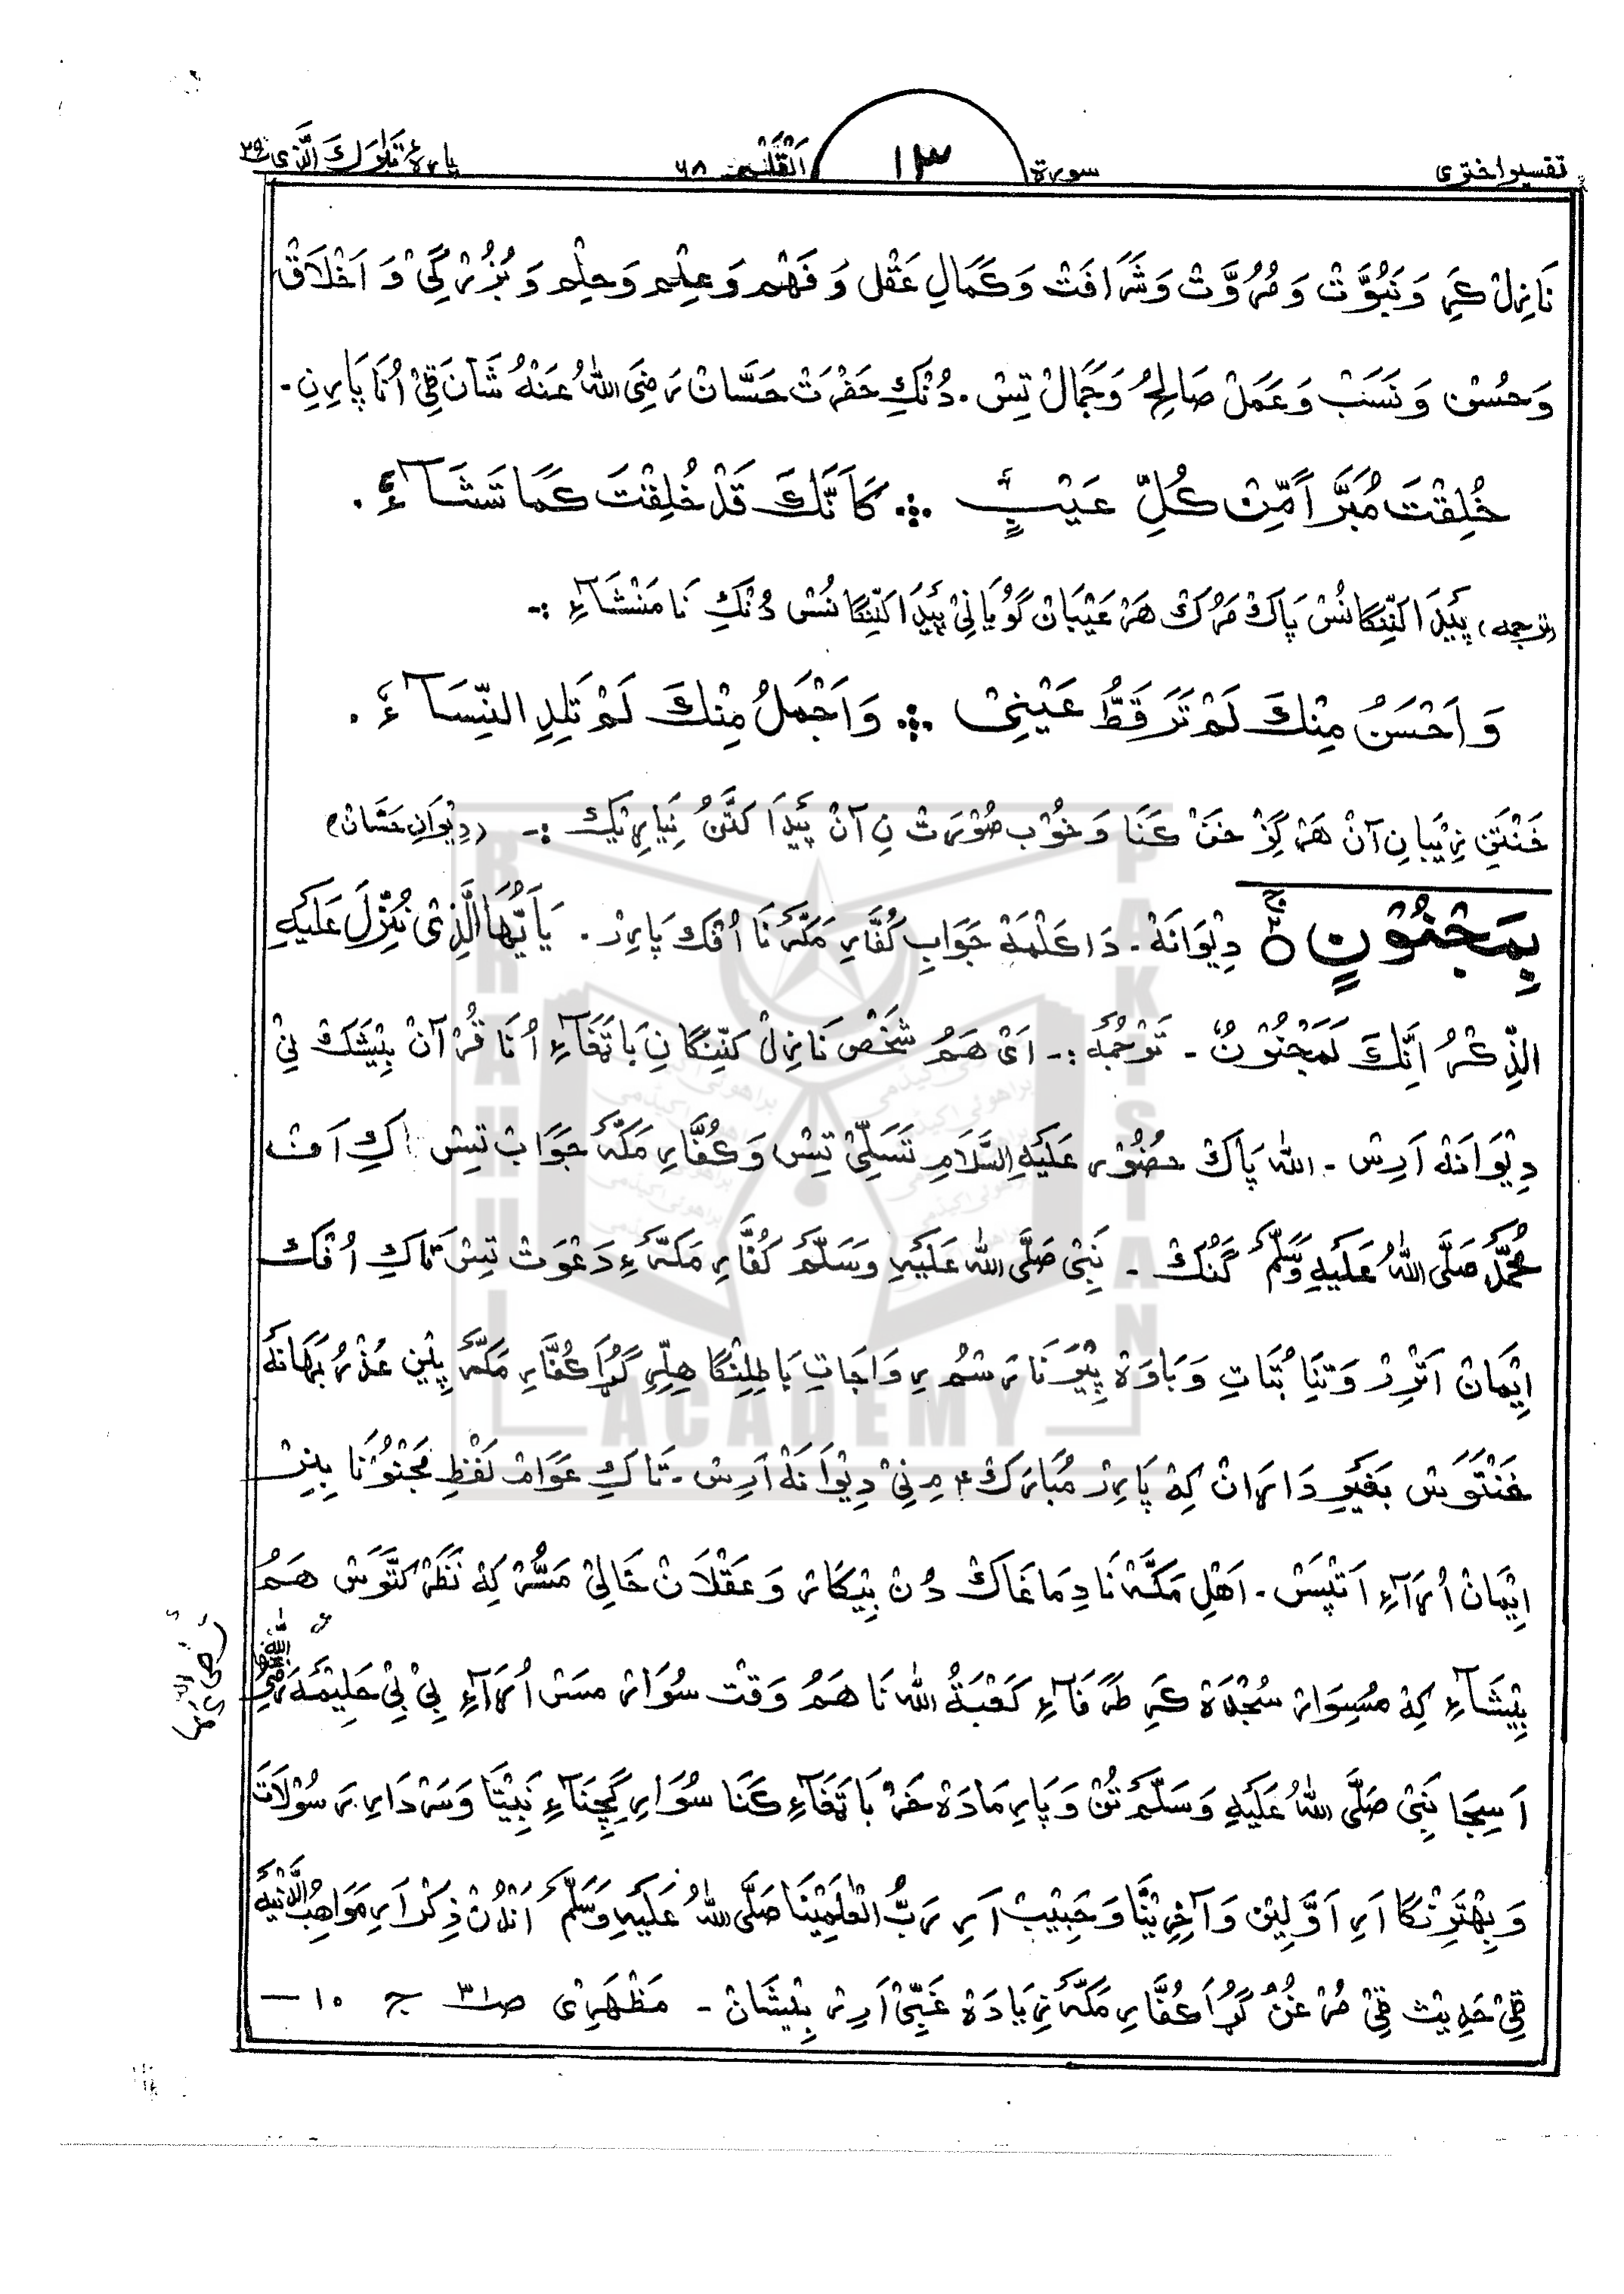 تفسیر اختری سورة ۱۳ اَلْقَلَمِ ۶۸ پارهٔ تَبَارَكَ الَّذِی ۲۹
نَازِلْ کَرِ وَ نَبُوَّتْ وَ مُرُوَّتْ وَ شَرَافَتْ وَ کَمَالِ عَقْل وَ فَهْم وَ عِلْم وَ حِلْم وَ بُزُرْگِیْ وَ اَخْلَاقْ
وَ حُسْن وَ نَسَبْ وَ عَمَلْ صَالِحُ وَ جَمَالْ تِس ۔ دُنْکِ حَضْرَتْ حَسَّانْ رَضِیَ اللّٰهُ عَنْهُ شَانَ قِیْ اُنَا پَارِنِ ۔
خُلِقْتَ مُبَرَّأً مِّنْ كُلِّ عَيْبٍ ∴ كَأَنَّكَ قَدْ خُلِقْتَ كَمَا تَشَآءُ ۔
(ترجمه) پَیْدَا کَنِّنْگَانُسْ پَاكْ مَرُكْ هَرْ عَیْبَانْ گُویَا نِیْ پَیْدَا کَنِّنْگَانُسْ دُنْکِ نَا مَنْشَآءِ :-
وَ اَحْسَنُ مِنْكَ لَمْ تَرَ قَطُّ عَيْنِيْ ∴ وَ اَجْمَلُ مِنْكَ لَمْ تَلِدِ النِّسَآءُ ۔
خَنْتَنِ زِیْبَانِ آنْ هَرْ گِزْ خَنَنْ کَنَا وَ خُوْب صُوْرَتْ نِ آنْ پَیْدَا کَتَّنُ نِیَارِیْك :- (دِیْوَانِ حَسَّانْ)
بِمَجْنُوْنٍ ۝ دِیْوَانَهْ ۔ دَا کَلْمَهْ جَوَابِ کُفَّارِ مَکَّهَ نَا اُفْك پَارِرْ ۔ يَا أَيُّهَا الَّذِىْ نُزِّلَ عَلَيْهِ
الذِّكْرُ اِنَّكَ لَمَجْنُوْنٌ ۔ تَرْجُمَه :- اَیْ هَمُ شَخْص نَازِلْ کَنِّنْگَانِ بَا تَغَآءِ اُنَا قُرْآنْ بِیْشَكْ نِیْ
دِیْوَانَهْ اَرِسْ ۔ اللّٰه پَاكْ حضُوْر عَلَيْهِ السَّلَام تَسَلِّیْ تِسْ وَ کُفَّارِ مَکَّهَ جَوَابْ تِسْ اکِ اَفْ
مُحَمَّدْ صَلَّى اللّٰهُ عَلَيْهِ وَسَلَّمَ گَنْك ۔ نَبِیْ صَلَّى اللّٰه عَلَيْهِ وَسَلَّمَ کُفَّارِ مَکَّهَ ءِ دَعْوَتْ تِسْ تَاكِ اُفْك
اِیْمَانْ اَتْرِرْ وَ تَنَا بُتَّاتِ وَ بَاوَهْ پِیْرَنَا رَسْمُ رِوَاجَاتِ بَاطِلِنْگَا هِلِّرِ گُڑَا کُفَّارِ مَکَّهَ پِلِین عُذْرُ بَهَانَهْ
خَنْتَوَس بَغَیْرِ دَارَانْ کِهْ پَارِرْ مُبَارَكْ ءِ نِیْ دِیْوَانَهْ اَرِسْ ۔ تَاكِ عَوَامْ لَفْظِ مَجْنُوْنَا بِنِرْ
اِیْمَانْ اُرَآءِ اَتَپَسْ ۔ اَهْلِ مَکَّهْ نَا دِمَاغَاكْ دُنْ بِیْکَارْ وَ عَقْلَانْ خَالِیْ مَسُّرْ کِهْ نَظَرْ کَتَّوَس هَمُ
بِیْشَآءِ کِهْ مُسِوَارْ سُجْدَهْ کَرِ طَرَفَآءِ کَعْبَةُ اللّٰه نَا هَمُ وَقْتْ سُوَارْ مَسْ اُرَآءِ بِیْ بِیْ حَلِیْمَهْ رَضِیَ اللّٰهُ عَنْهَا
اَسِجَا نَبِیْ صَلَّى اللّٰهُ عَلَيْهِ وَسَلَّمَ تُنْ وَ پَارِ مَادَهْ خَرْ بَا تَغَآءِ کَنَا سُوَارِ گِچِنَآءِ نَبِیْتَا وَ سَرْدَارِ رَسُوْلَاتَ
وَ بِهْتَرِنْگَا اَرِ اَوَّلِیْن وَ آخِرِیْنَا وَ حَبِیْبْ اَرِ رَبُّ الْعٰلَمِیْنَا صَلَّى اللّٰهُ عَلَيْهِ وَسَلَّمَ اَنْدُنْ ذِکْر اَرِ مَوَاهِبُ اللَّدُنِّیَه
قِیْ حَدِیْث قِیْ مُرْ غَنُ گُڑَا کُفَّارِ مَکَّهْ زِیَادَهْ غَبِّیْ اَرِرْ بِیْشَانْ ۔ مَظْهَرِیْ ص ۳۱ ج ۱۰ —
BRAHUI
ACADEMY
PAKISTAN
براهوئی اکیڈمی